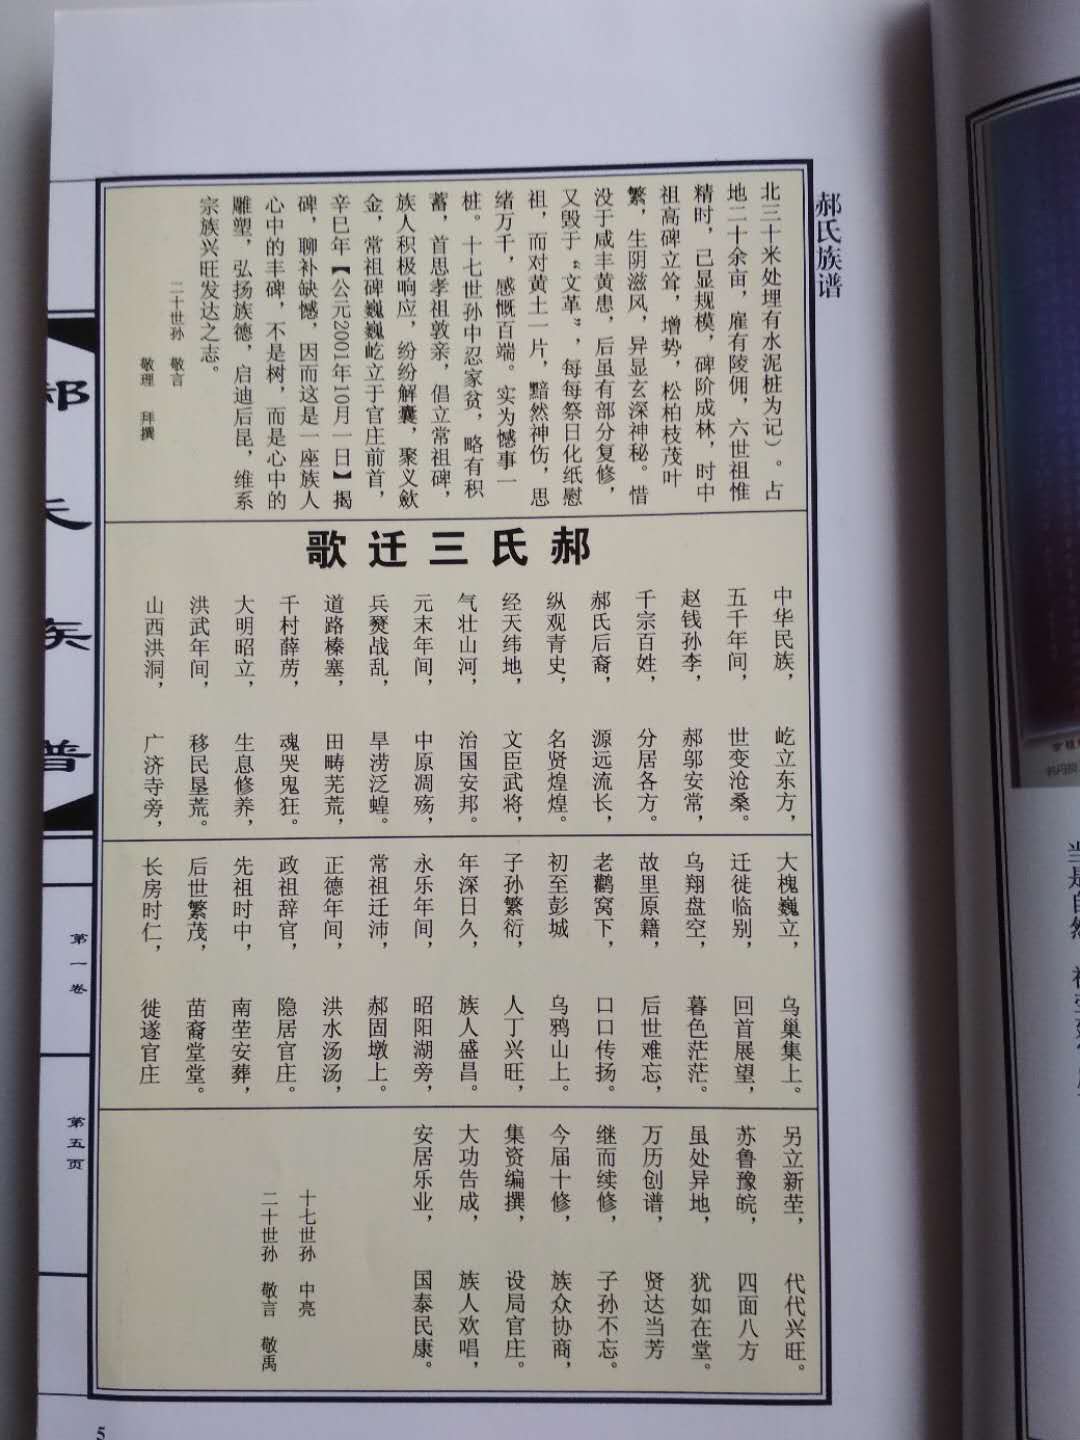 郝氏族谱
北三十米处埋有水泥桩为记）。占
地二十余亩，雇有陵佣，六世祖惟
精时，已显规模，碑阶成林，时中
祖高碑立耸，增势，松柏枝茂叶
繁，生阴滋风，异显玄深神秘。惜
没于咸丰黄患，后虽有部分复修，
又毁于“文革”，每每祭日化纸慰
祖，而对黄土一片，黯然神伤，思
绪万千，感慨百端。实为憾事一
桩。十七世孙中忍家贫，略有积
蓄，首思孝祖敦亲，倡立常祖碑，
族人积极响应，纷纷解囊，聚义敛
金，常祖碑巍巍屹立于官庄前首，
辛巳年【公元2001年10月一日】揭
碑，聊补缺憾，因而这是一座族人
心中的丰碑，不是树，而是心中的
雕塑，弘扬族德，启迪后昆，维系
宗族兴旺发达之志。
二十世孙 敬言
敬理 拜撰
郝氏三迁歌
中华民族， 屹立东方，
五千年间， 世变沧桑。
赵钱孙李， 郝邬安常，
千宗百姓， 分居各方。
郝氏后裔， 源远流长，
纵观青史， 名贤煌煌。
经天纬地， 文臣武将，
气壮山河， 治国安邦。
元末年间， 中原凋殇，
兵燹战乱， 旱涝泛蝗。
道路榛塞， 田畴芜荒，
千村薜苈， 魂哭鬼狂。
大明昭立， 生息修养，
洪武年间， 移民垦荒。
山西洪洞， 广济寺旁，
大槐巍立， 乌巢集上。
迁徙临别， 回首展望，
乌翔盘空， 暮色茫茫。
故里原籍， 后世难忘，
老鹳窝下， 口口传扬。
初至彭城 乌鸦山上。
子孙繁衍， 人丁兴旺，
年深日久， 族人盛昌。
永乐年间， 昭阳湖旁，
常祖迁沛， 郝固墩上。
正德年间， 洪水汤汤，
政祖辞官， 隐居官庄。
先祖时中， 南茔安葬，
后世繁茂， 苗裔堂堂。
长房时仁， 徙遂官庄
另立新茔， 代代兴旺。
苏鲁豫皖， 四面八方
虽处异地， 犹如在堂。
万历创谱， 贤达当芳
继而续修， 子孙不忘。
今届十修， 族众协商，
集资编撰， 设局官庄。
大功告成， 族人欢唱，
安居乐业， 国泰民康。
十七世孙 中亮
二十世孙 敬言 敬禹
郝氏族谱
第一卷
第五页
5